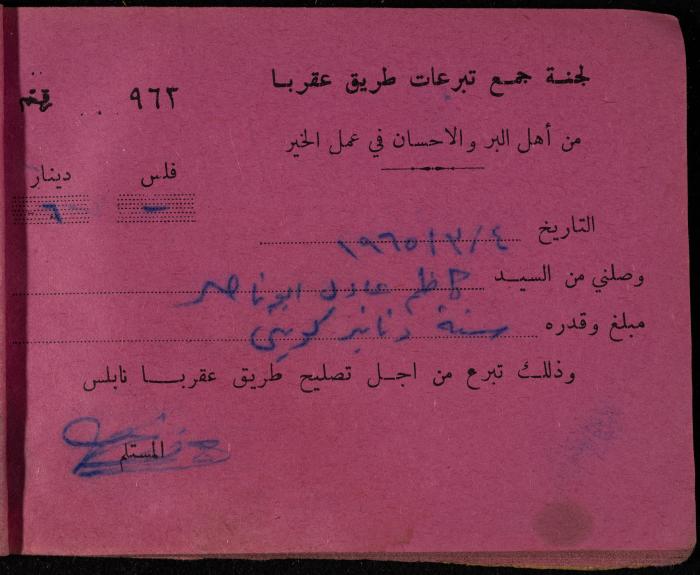 لجنة جمع تبرعات طريق عقربا
٩٦٢
من أهل البر والاحسان في عمل الخير
فلس دينار
- ٦
التاريخ ٤/٣/١٩٦٥
وصلني من السيد كاظم عادل ابو ناصر
مبلغ وقدره ستة دنانير كويتي
وذلك تبرع من اجل تصليح طريق عقربا نابلس
المستلم